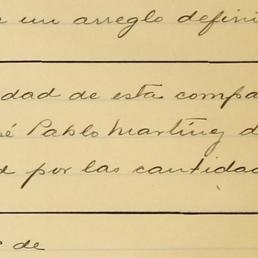 un arreglo defini
dad de esta compa
sé Pablo Martíng d
d por las cantidad
de